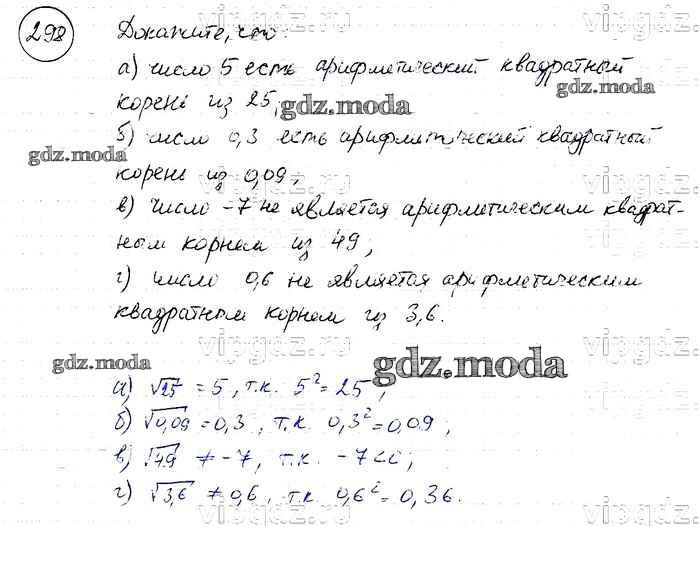 298
Докажите, что:
а) число 5 есть арифметический квадратный
корень из 25,
gdz.moda
б) число 0,3 есть арифметический квадратный
gdz.moda
корень из 0,09,
в) число -7 не является арифметическим квадрат-
ным корнем из 49;
г) число 0,6 не является арифметическим
квадратным корнем из 3,6.
gdz.moda
gdz.moda
а) √25 = 5, т.к. 5² = 25,
б) √0,09 = 0,3, т.к. 0,3² = 0,09,
в) √49 ≠ -7, т.к. -7<0;
г) √3,6 ≠ 0,6, т.к. 0,6² = 0,36.